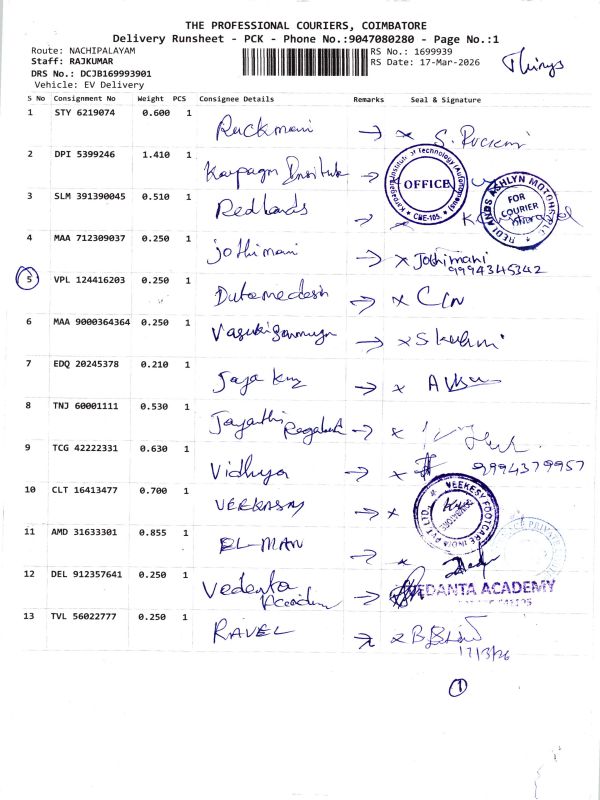 THE PROFESSIONAL COURIERS, COIMBATORE
Delivery Runsheet - PCK - Phone No.:9047080280 - Page No.:1
Route: NACHIPALAYAM
Staff: RAJKUMAR
DRS No.: DCJB169993901
Vehicle: EV Delivery
RS No.: 1699939
RS Date: 17-Mar-2026
S No Consignment No Weight PCS Consignee Details Remarks Seal & Signature
1 STY 6219074 0.600 1 Ruckmani
2 DPI 5399246 1.410 1 Karpagm Institute OFFICE CBE-105.
3 SLM 391390045 0.510 1 Redlands REDLANDS ASHLYN MOTORS PLC FOR COURIER
4 MAA 712309037 0.250 1 jothimani Jothimani
9994345342
5 VPL 124416203 0.250 1
6 MAA 9000364364 0.250 1
7 EDQ 20245378 0.210 1 Jaya
8 TNJ 60001111 0.530 1 Jayanthi
9 TCG 42222331 0.630 1 Vidhya 9994379957
10 CLT 16413477 0.700 1 VEEKESY VEEKESY FOOTCARE INDIA PVT.LTD.
11 AMD 31633301 0.855 1 EL-MAN
12 DEL 912357641 0.250 1 Vedanta EDANTA ACADEMY
13 TVL 56022777 0.250 1 RAVEL
17/3/26
1